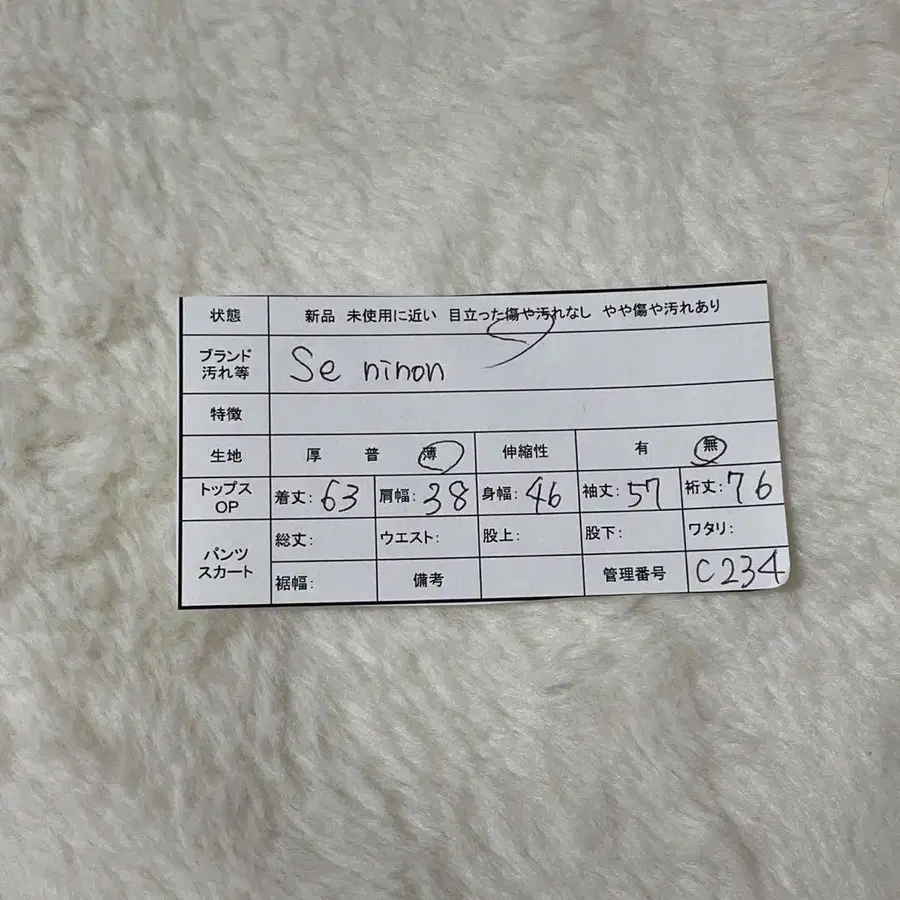 状態 新品 未使用に近い 目立った傷や汚れなし やや傷や汚れあり
ブランド
汚れ等
Se ninon
特徴
生地 厚 普 薄 伸縮性 有 無
トップス
OP
着丈: 63 肩幅: 38 身幅: 46 袖丈: 57 裄丈: 76
パンツ
スカート
総丈: ウエスト: 股上: 股下: ワタリ:
裾幅: 備考 管理番号 C234